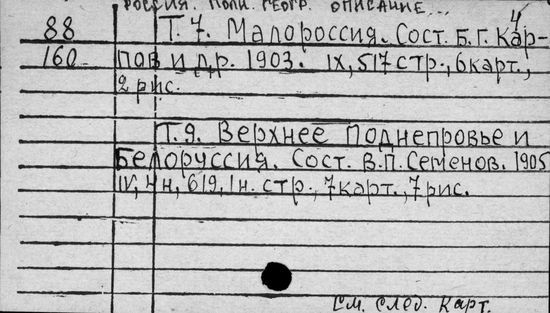 РОССИЯ. ПОЛН. ГЕОГР. ОПИСАНИЕ... 4
88 Т. 7. Малороссия. Сост. Б. Г. Кар-
160 пов и др. 1903. IX, 517 стр., 6 карт.,
2 рис.
Т. 9. Верхнее Поднепровье и
Белоруссия. Сост. В. П. Семенов. 1905
IV, 4н, 619, 1н. стр., 7 карт., 7 рис.
См. след. карт.